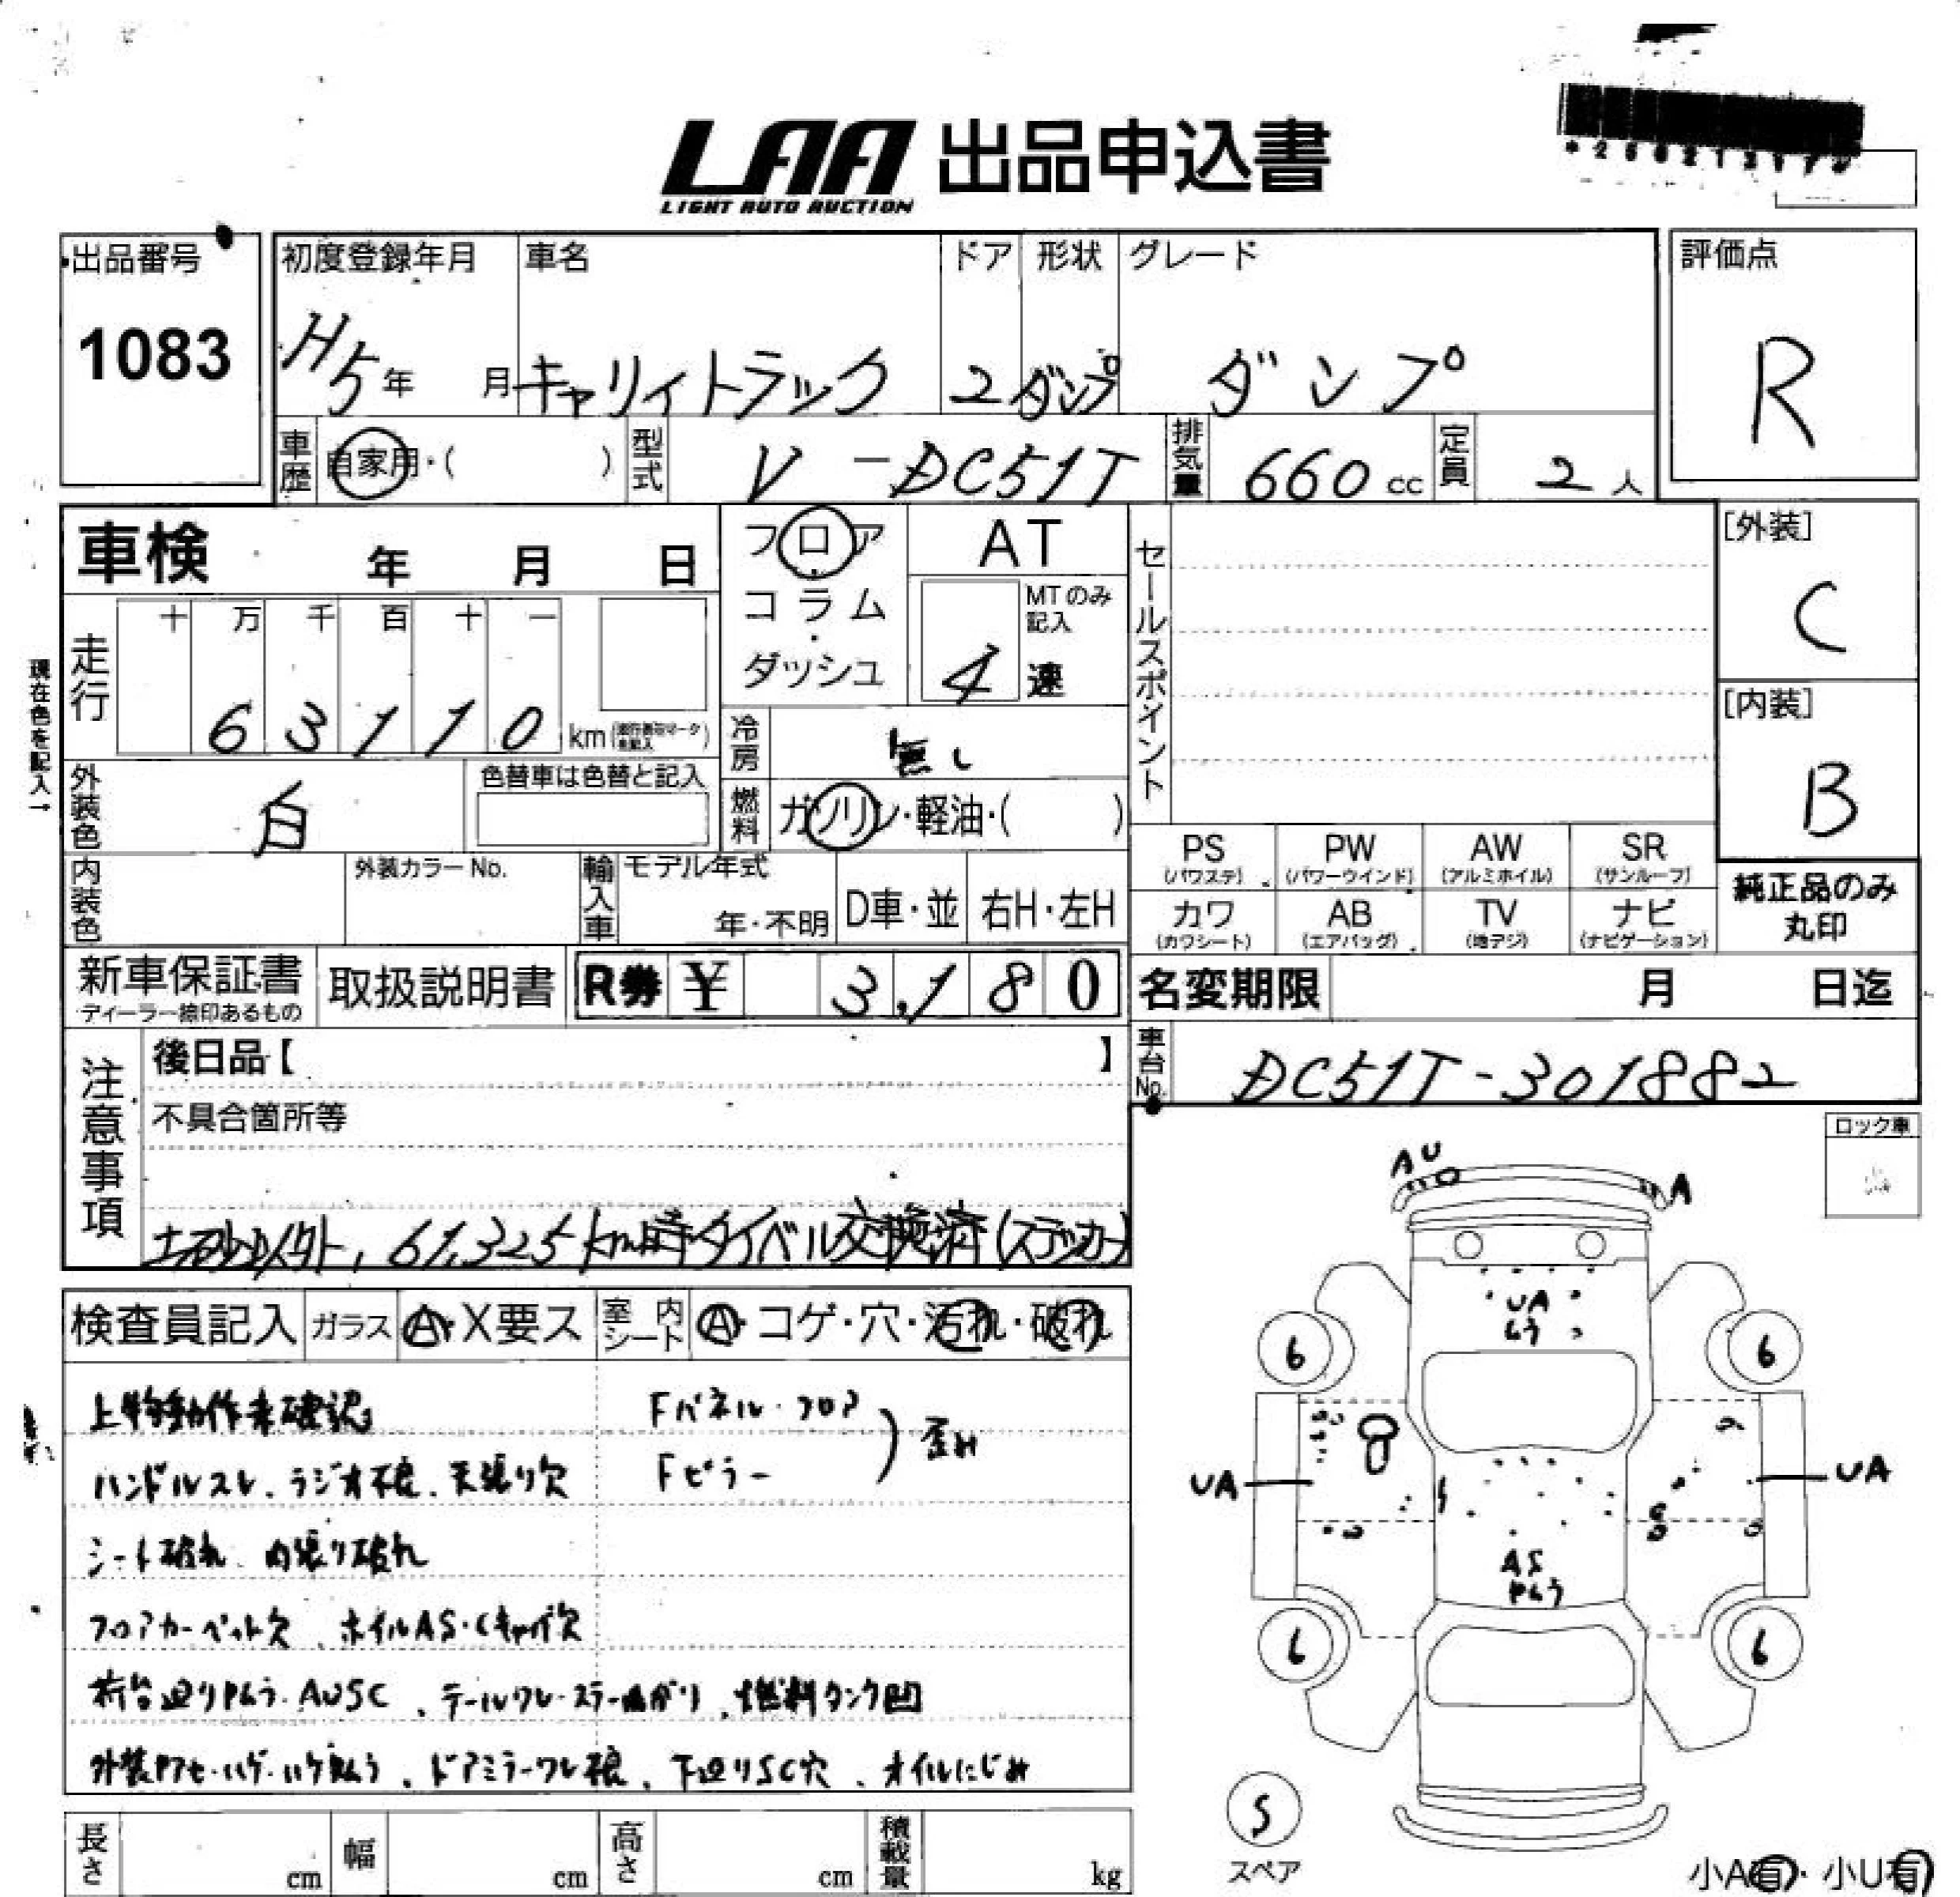 LAA 出品申込書
LIGHT AUTO AUCTION
出品番号
1083
初度登録年月
H5年 月
車名
キャリイトラック
ドア
2
形状
ダンプ
グレード
ダンプ
評価点
R
車歴 自家用・( )
型式 V-DC51T
排気量 660cc
定員 2人
車検 年 月 日
フロア・コラム・ダッシュ
AT
MTのみ記入
4速
セールスポイント
[外装]
C
[内装]
B
現在色を記入→
走行
十 万 千 百 十 一
6 3 1 1 0 km
冷房 無し
外装色 白
色替車は色替と記入
燃料 ガソリン・軽油・( )
内装色
外装カラーNo.
輸入車 モデル年式
年・不明
D車・並
右H・左H
PS (パワステ)
PW (パワーウインド)
AW (アルミホイル)
SR (サンルーフ)
カワ (カワシート)
AB (エアバッグ)
TV (地デジ)
ナビ (ナビゲーション)
純正品のみ
丸印
新車保証書
ディーラー捺印あるもの
取扱説明書
R券 ¥ 3,180
名変期限 月 日迄
車台No. DC51T-301882
注意事項
後日品【 】
不具合箇所等
土砂以外, 61,325km時タイベル交換済(ステッカー)
ロック車
検査員記入
ガラス A・X要ス
室内シート A・コゲ・穴・汚れ・破れ
上物動作未確認
Fパネル・フロア
Fピラー
歪み
ハンドルスレ、ラジオ不良、天張り欠
シート破れ、内張り破れ
フロアカーペット欠、ホイルAS・Cキャップ欠
荷台廻りPムラ・AUSC、テールワレ・ステー曲がり、燃料タンク凹
外装Pアセ・ハゲ・ハケ塗ムラ、ドアミラーワレ、下廻りSC穴、オイルにじみ
AU
A
UA
ムラ
6
6
UA
UA
AS
Pムラ
6
6
S
スペア
長さ cm
幅 cm
高さ cm
積載量 kg
小A有・小U有